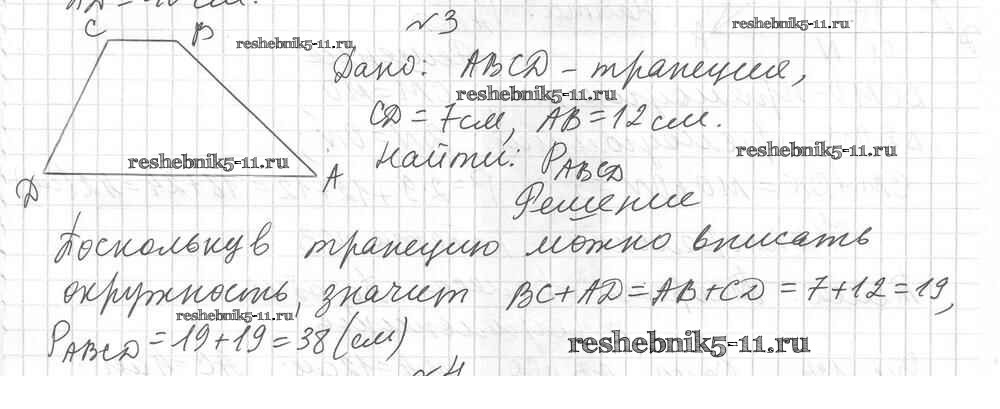 №3
C B
Дано: ABCD – трапеция,
CD = 7см, AB = 12 см.
Найти: P_ABCD
D A
Решение
Поскольку в трапецию можно вписать
окружность, значит BC + AD = AB + CD = 7 + 12 = 19,
P_ABCD = 19 + 19 = 38 (см)
№4
reshebnik5-11.ru
reshebnik5-11.ru
reshebnik5-11.ru
reshebnik5-11.ru
reshebnik5-11.ru
reshebnik5-11.ru
reshebnik5-11.ru